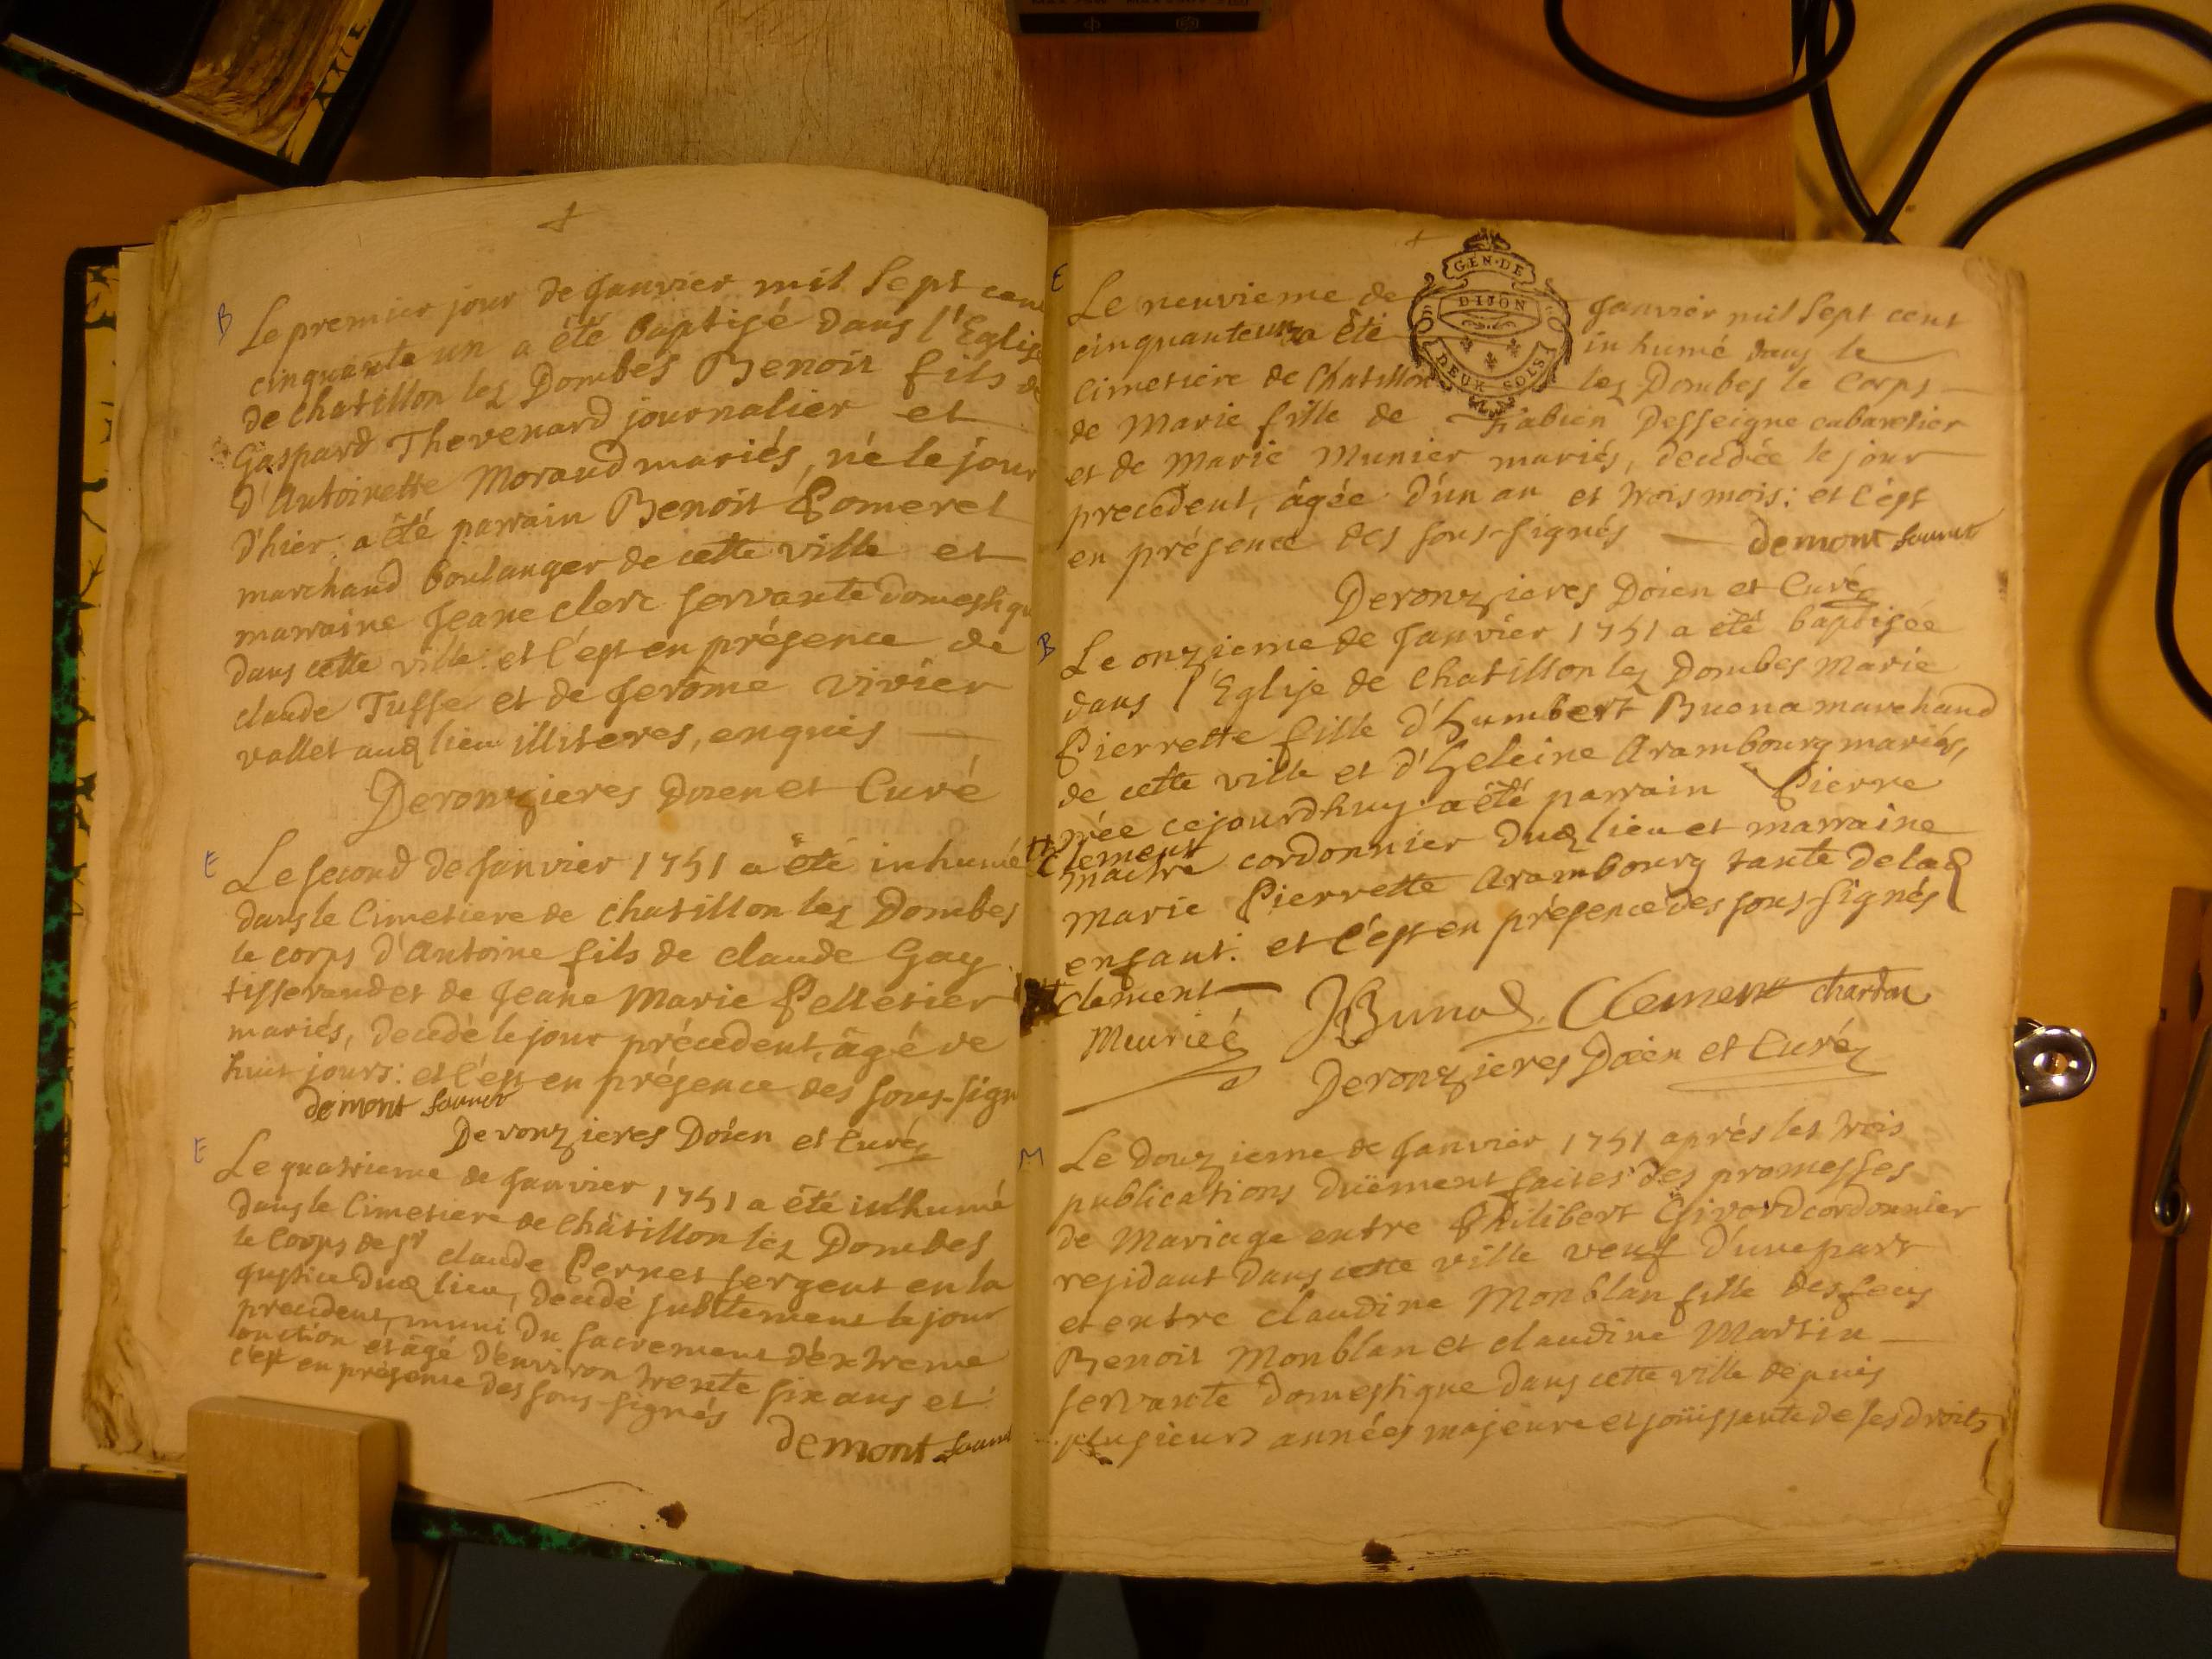 B
Le premier jour de Janvier mil Sept cent
cinquante un a été baptisé dans l'Eglise
de chatillon lez Dombes Benoit fils de
Gaspard Thevenard journalier et
d'Antoinette Morand mariés, né le jour
d'hier: a été parrain Benoit Pomerel
marchand boulanger de cette ville et
marraine Jeane clerc servante domestique
dans cette ville: et c'est en présence de
claude Tuffe et de Jerôme vivier
vallet audq lieu illiteres, enquis
Deronzieres Doien et Curé
E
Le second de Janvier 1751 a été inhumé
dans le Cimetiere de chatillon lez Dombes
le corps d'Antoine fils de claude Gay
tisserand et de Jeane Marie Pelletier
mariés, decedé le jour précedent, âgé de
huit jours: et c'est en présence des sous-sign
demont
Deronzieres Doien et Curé
E
Le quatrieme de Janvier 1751 a été inhumé
dans le Cimetiere de Châtillon lez Dombes
le Corps de Sr claude Pernet sergent en la
justice dudq lieu, decedé subitement le jour
precedent, muni du sacrement d'éxtreme
onction et âgé d'environ trente six ans et
c'est en présence des sous-signés
demont
E
GEN·DE
DIJON
DEUX SOLS
Le neuvieme de Janvier mil Sept cent
cinquante un a été inhumé dans le
Cimetiere de Chatillon lez Dombes le Corps
de Marie fille de Fabien Desseigne cabaretier
et de Marie Munier mariés, decedée le jour
precedent, âgée d'un an et trois mois: et c'est
en présence des sous-signés demont
Deronzieres Doien et Curé
B
Le onzieme de Janvier 1751 a été baptisée
dans l'Eglise de Chatillon lez Dombes Marie
Pierrette fille d'humbert Buena marchand
de cette ville et d'heleine Arambourg mariés,
née cejourdhuy: a été parrain Pierre
Clement
maitre cordonnier dudq lieu et marraine
Marie Pierrette Arambourg tante de ladq
enfant: et c'est en présence des sous-signés
Clement Clement chardon
Deronzieres Doien et Curé
M
Le douzieme de Janvier 1751 aprés les trois
publications duëment faites des promesses
de Mariage entre Philibert Givord cordonnier
residant dans cette ville veuf d'une part
et entre claudine Monblan fille des feus
Benoit Monblan et claudine Martin
servante domestique dans cette ville depuis
plusieurs années majeure et joüissante de ses droits